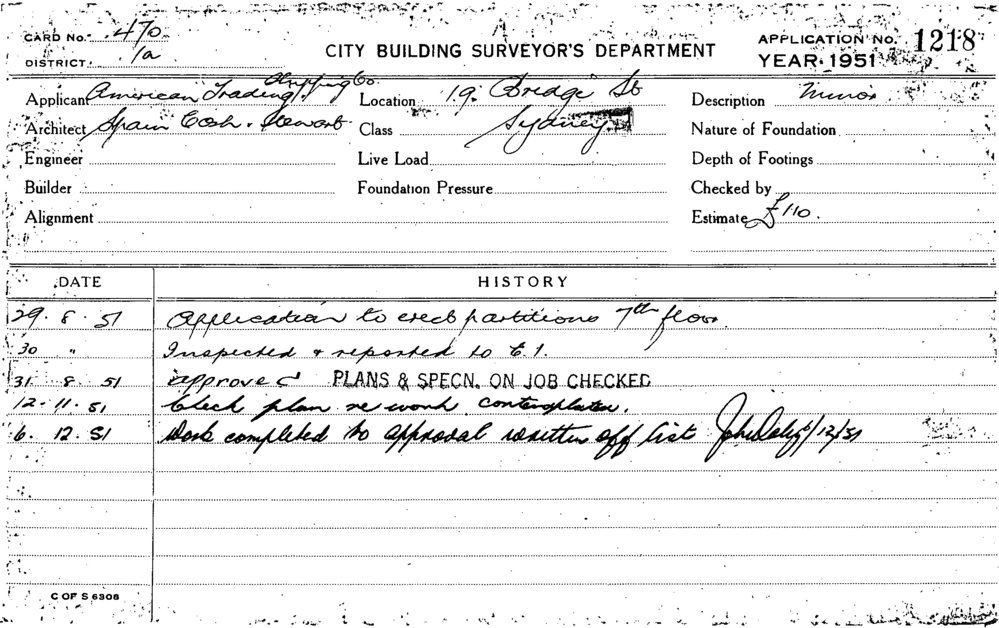 CARD No. 470
DISTRICT. 1a
CITY BUILDING SURVEYOR'S DEPARTMENT
APPLICATION No. 1218
YEAR 1951
Applicant American Trading & Shipping Co
Location 19 Bridge St
Description Minor
Architect Spain Cosh & Stewart
Class Sydney
Nature of Foundation
Engineer
Live Load
Depth of Footings
Builder
Foundation Pressure
Checked by
Alignment
Estimate £110.
DATE HISTORY
29. 8. 51 Application to erect partitions 7th floor.
30 " Inspected & reported to C.I.
31 8 51 approved PLANS & SPECN. ON JOB CHECKED
12.11.51 Check plan re work contemplated.
6. 12. 51 Work completed to approval written off list 6/12/51
C OF S 6308